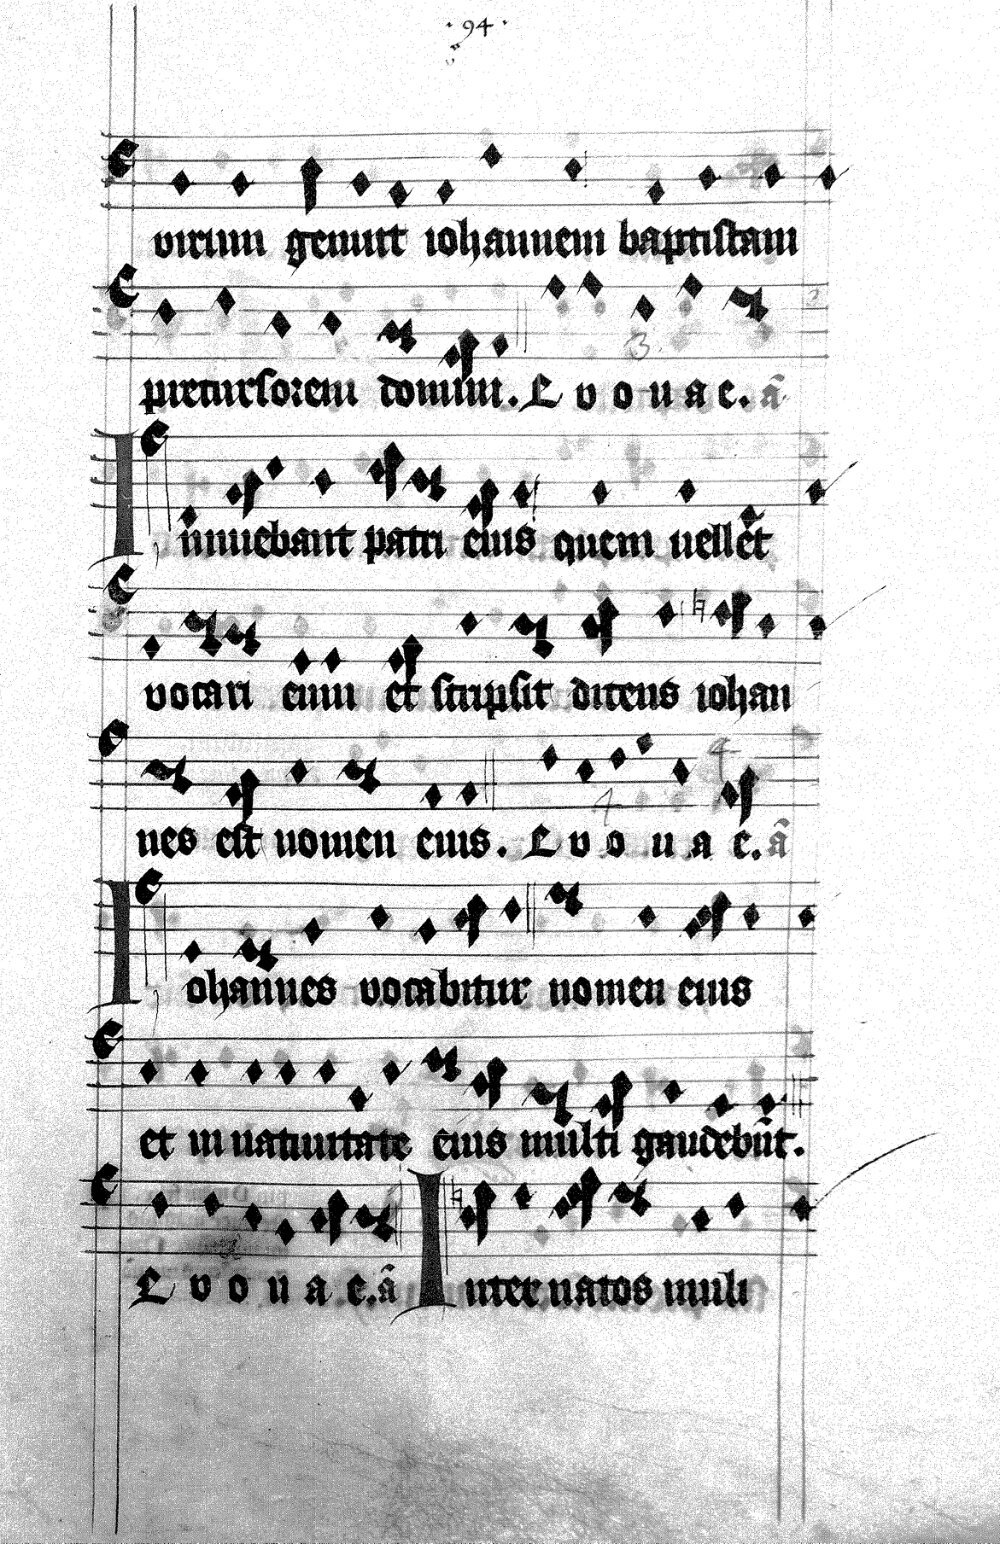 · 94 ·
virum genuit iohannem baptistam
precursorem domini. E v o u a e. ā
3.
Innuebant patri eius quem uellēt
vocari eum et scripsit dicens iohan
nes est nomen eius. E v o u a e. ā
4 4
Iohannes vocabitur nomen eius
et in natiuitate eius multi gaudebūt.
E v o u a e. ā Inter natos muli